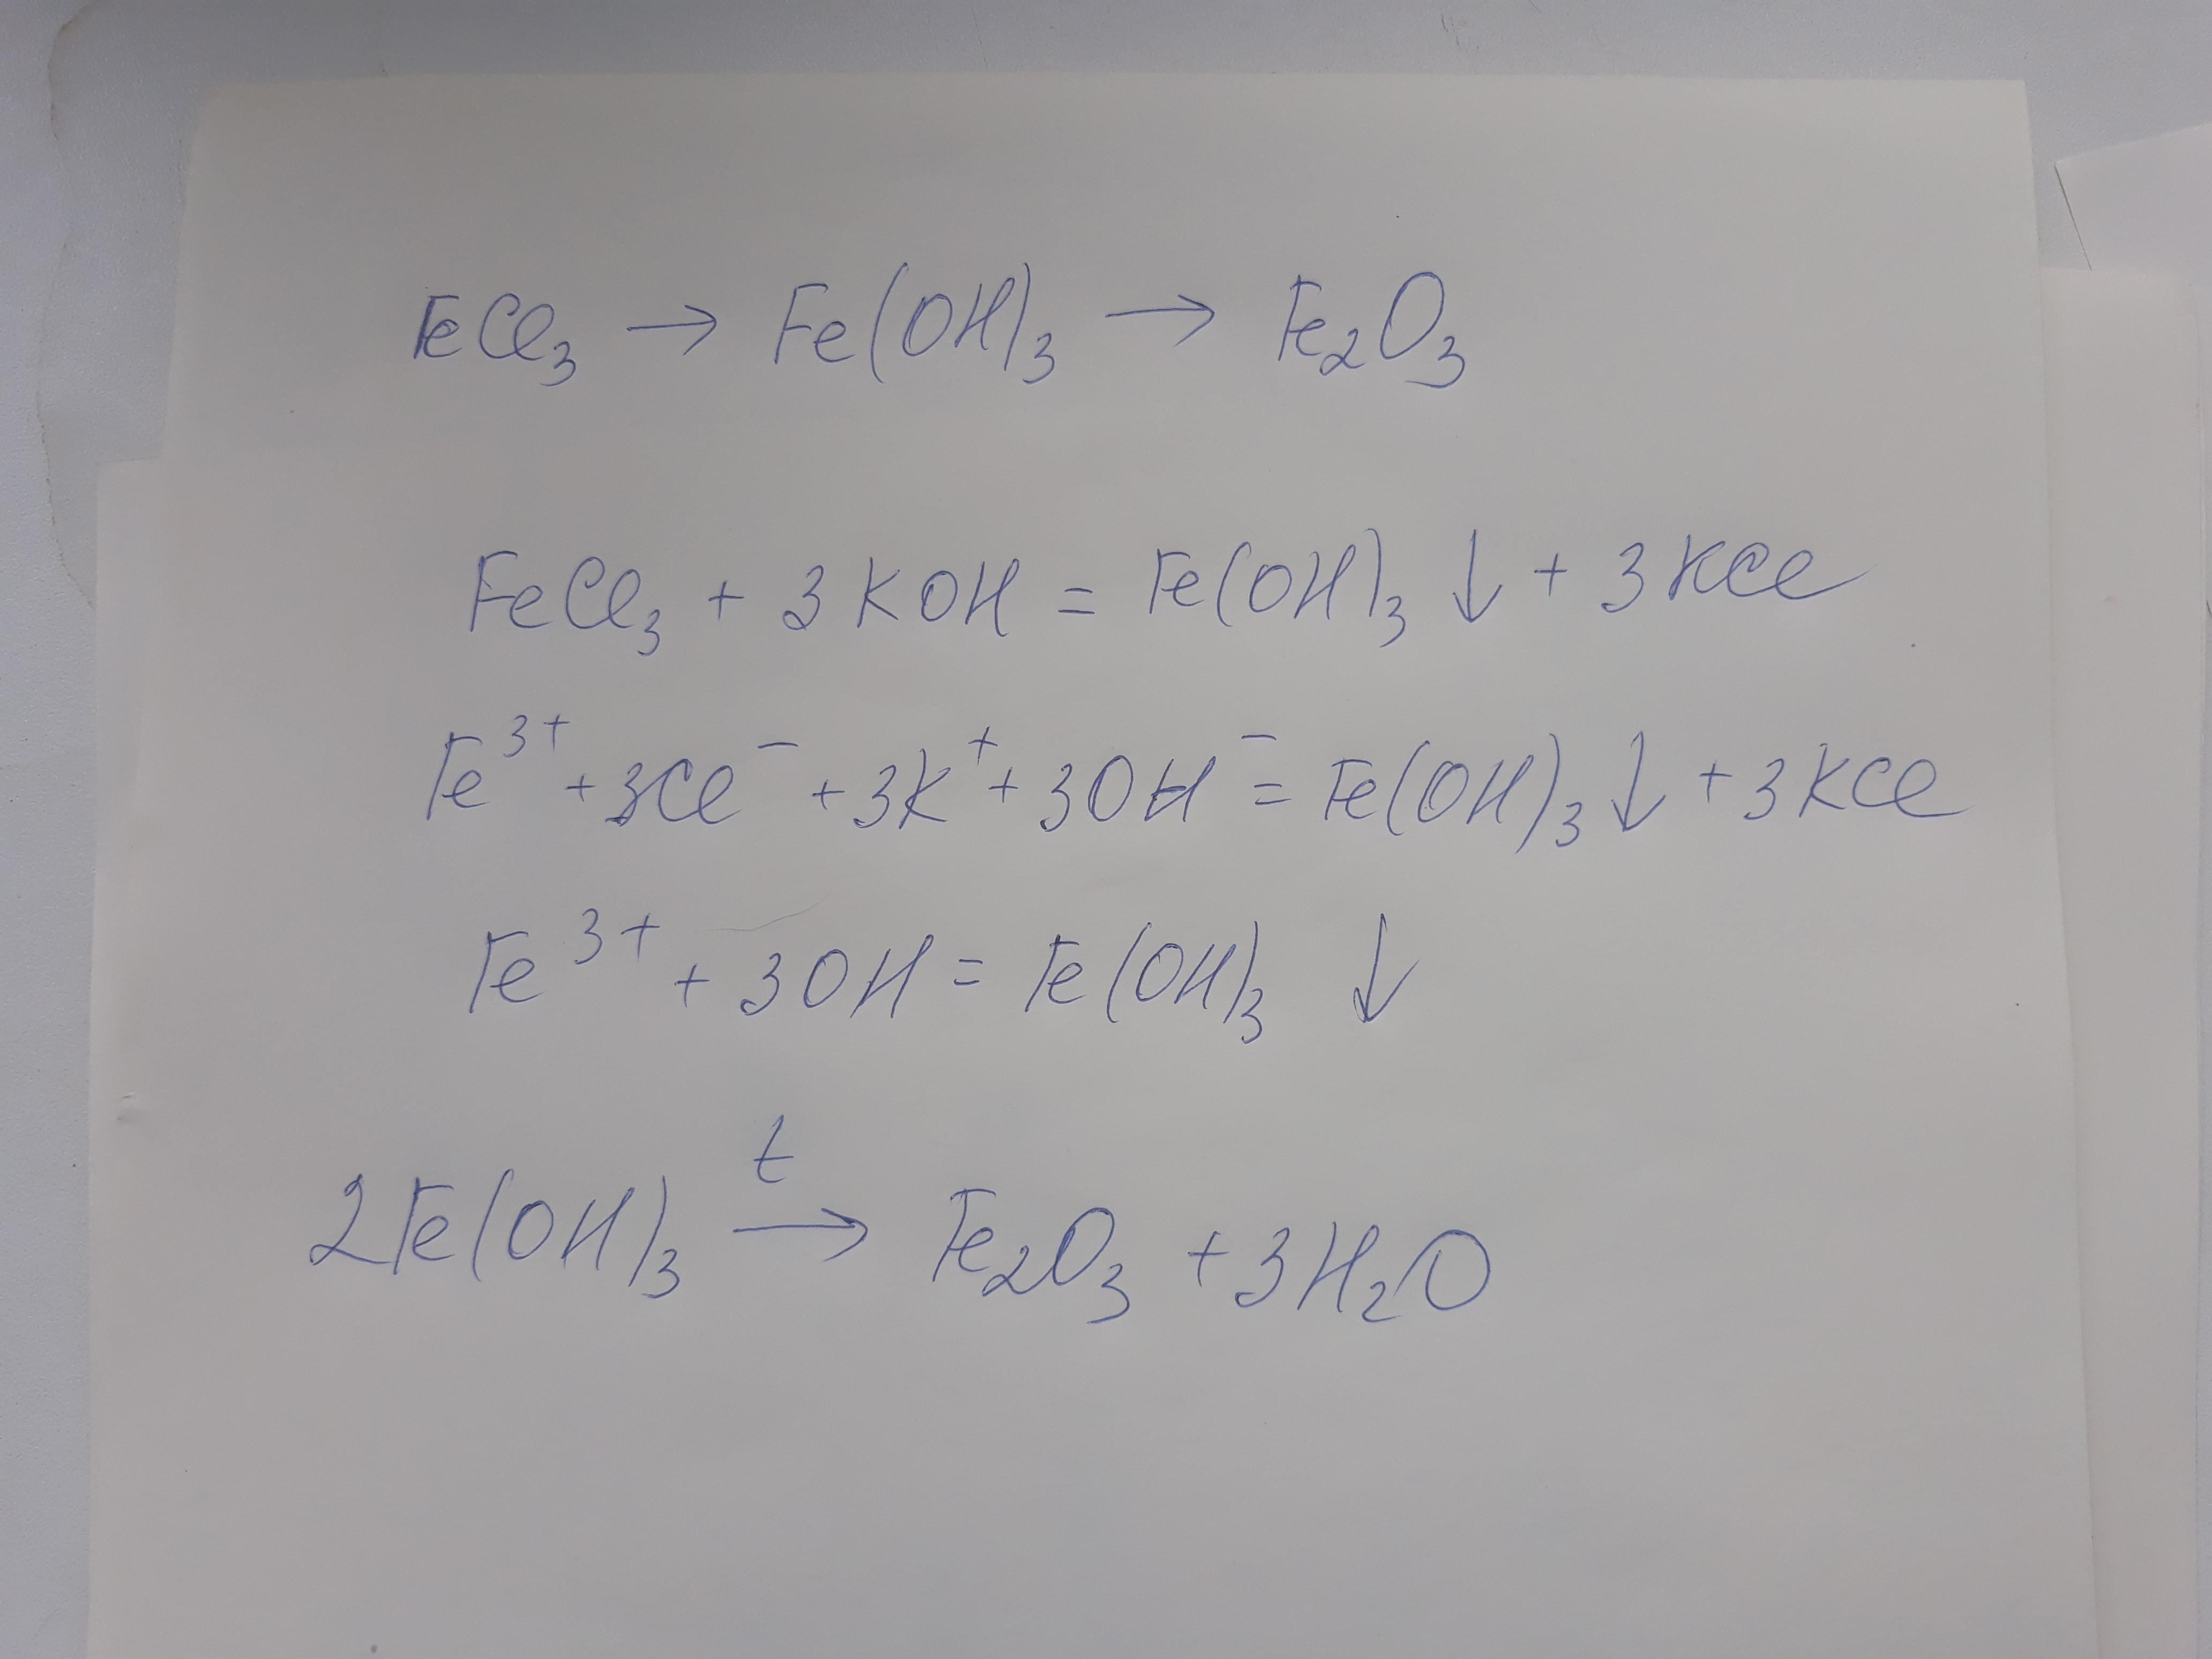 FeCl₃ → Fe(OH)₃ → Fe₂O₃
FeCl₃ + 3KOH = Fe(OH)₃ ↓ + 3KCl
Fe³⁺ + 3Cl⁻ + 3K⁺ + 3OH⁻ = Fe(OH)₃ ↓ + 3KCl
Fe³⁺ + 3OH = Fe(OH)₃ ↓
t
2Fe(OH)₃ → Fe₂O₃ + 3H₂O